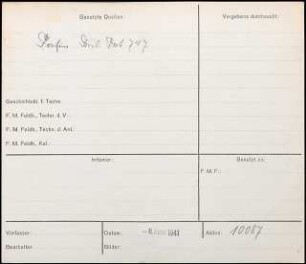 Benutzte Quellen
Vergebens durchsucht:
747
Geschichtsbl. f. Techn.
F. M. Feldh., Techn. d. V.
F. M. Feldh., Techn. d. Ant.
F. M. Feldh., Kal.:
Irrtümer:
Benützt zu:
F. M. F.:
Verfasser:
Datum:
1941
Akten:
10087
Bearbeiter
Bilder: